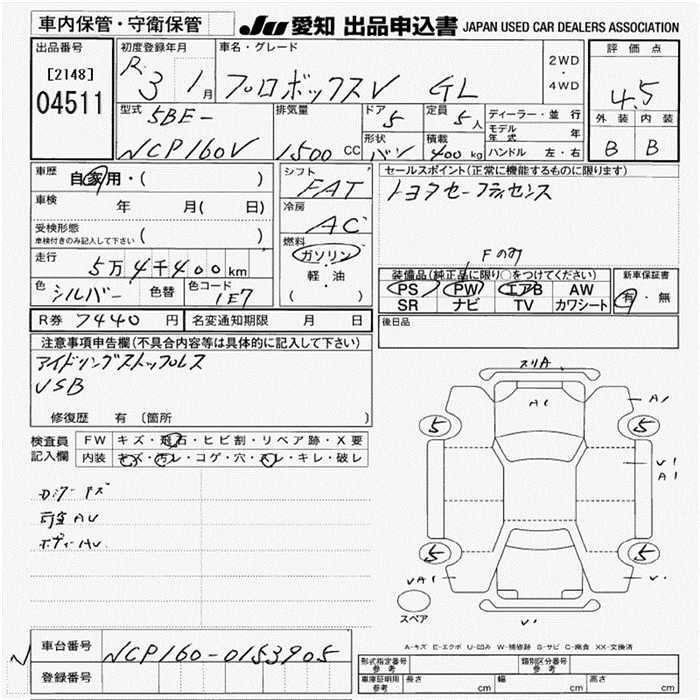 車内保管・守衛保管
JU 愛知 出品申込書 JAPAN USED CAR DEALERS ASSOCIATION
出品番号
[2148]
04511
初度登録年月
R 3 1月
車名・グレード
プロボックスV GL
2WD
・
4WD
評価点
4.5
外装 内装
B B
型式
5BE-
NCP160V
排気量
1500 CC
ドア
5
形状
バン
定員
5人
積載
400 kg
ディーラー・並行
モデル年式 年
ハンドル 左・右
車歴
自家用・( )
車検 年 月( 日)
受検形態
車検付きのみ記入して下さい ( )
走行
5万4千400km
色
シルバー
色替
色コード
1E7
シフト
FAT
冷房
AC
燃料
ガソリン
・
軽・油
( )
セールスポイント(正常に機能するものに限ります)
トヨタセーフティセンス
Fのみ
装備品(純正品に限り○をつけてください)
PS PW エアB AW
SR ナビ TV カワシート
新車保証書
有・無
R券 7440 円
名変通知期限 月 日
後日品
注意事項申告欄(不具合内容等は具体的に記入して下さい)
アイドリングストップレス
USB
修復歴 有 〔箇所 〕
検査員
記入欄
FW キズ・飛石・ヒビ割・リペア跡・X要
内装 キズ・汚レ・コゲ・穴・スレ・キレ・破レ
ボディーAU
スリA
A1
A1
5
5
V1
A1
5
5
VA1
V・
V・
スペア
A-キズ E-エクボ U-凹み W-補修跡 S-サビ C-腐食 XX-交換済
N
車台番号
NCP160-0153905
登録番号
形式指定番号
参考
類別区分番号
参考
車庫証明用
参考
長さ cm 幅 cm 高さ cm